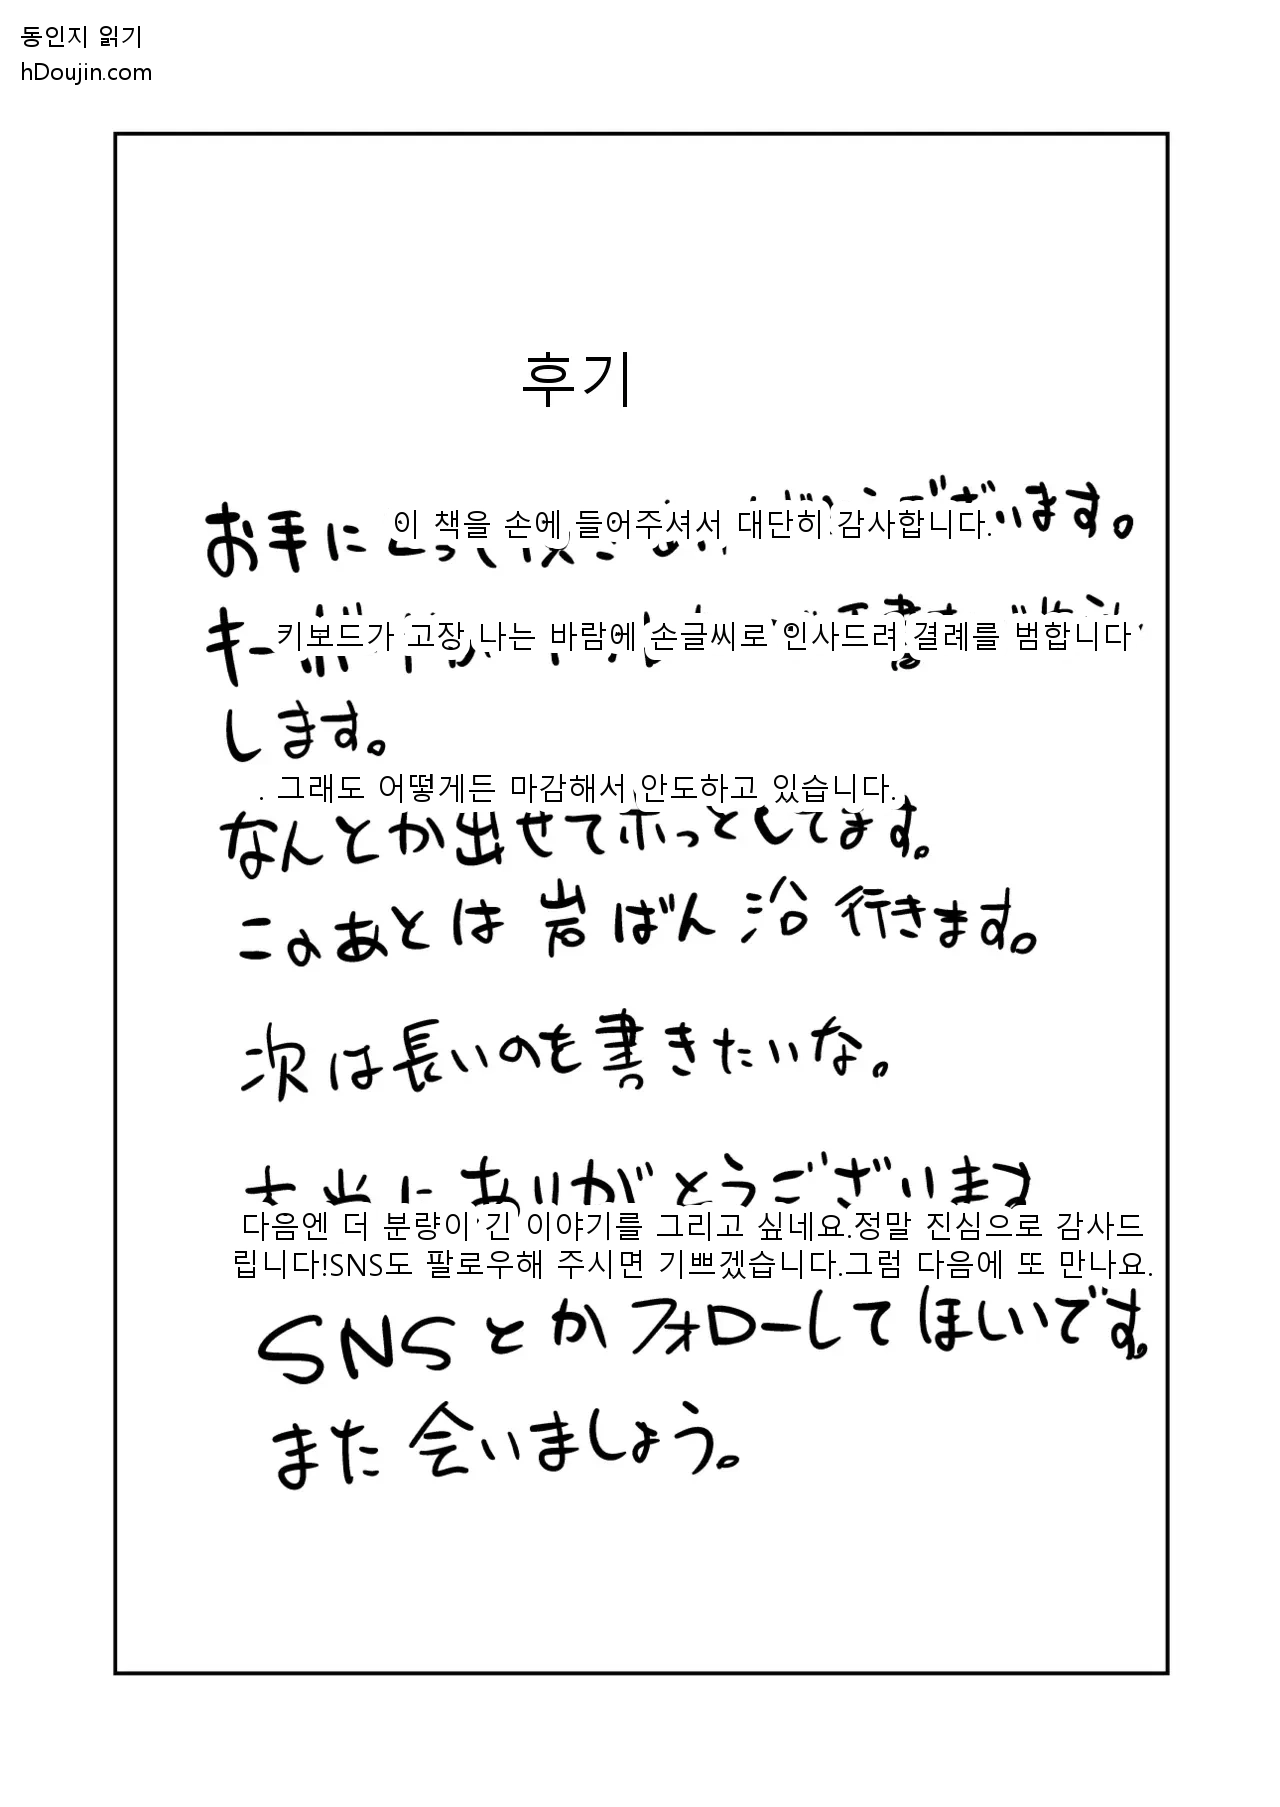 동인지 읽기
hDoujin.com
후기
이 책을 손에 들어주셔서 대단히 감사합니다.
お手に ございます。
키보드가 고장 나는 바람에 손글씨로 인사드려 결례를 범합니다
キー
します。
. 그래도 어떻게든 마감해서 안도하고 있습니다.
なんとか出せてホっとしてます。
このあとは岩ばん浴行きます。
次は長いのを書きたいな。
ありがとうございます
다음엔 더 분량이 긴 이야기를 그리고 싶네요.정말 진심으로 감사드
립니다!SNS도 팔로우해 주시면 기쁘겠습니다.그럼 다음에 또 만나요.
SNSとかフォローしてほしいです。
また会いましょう。